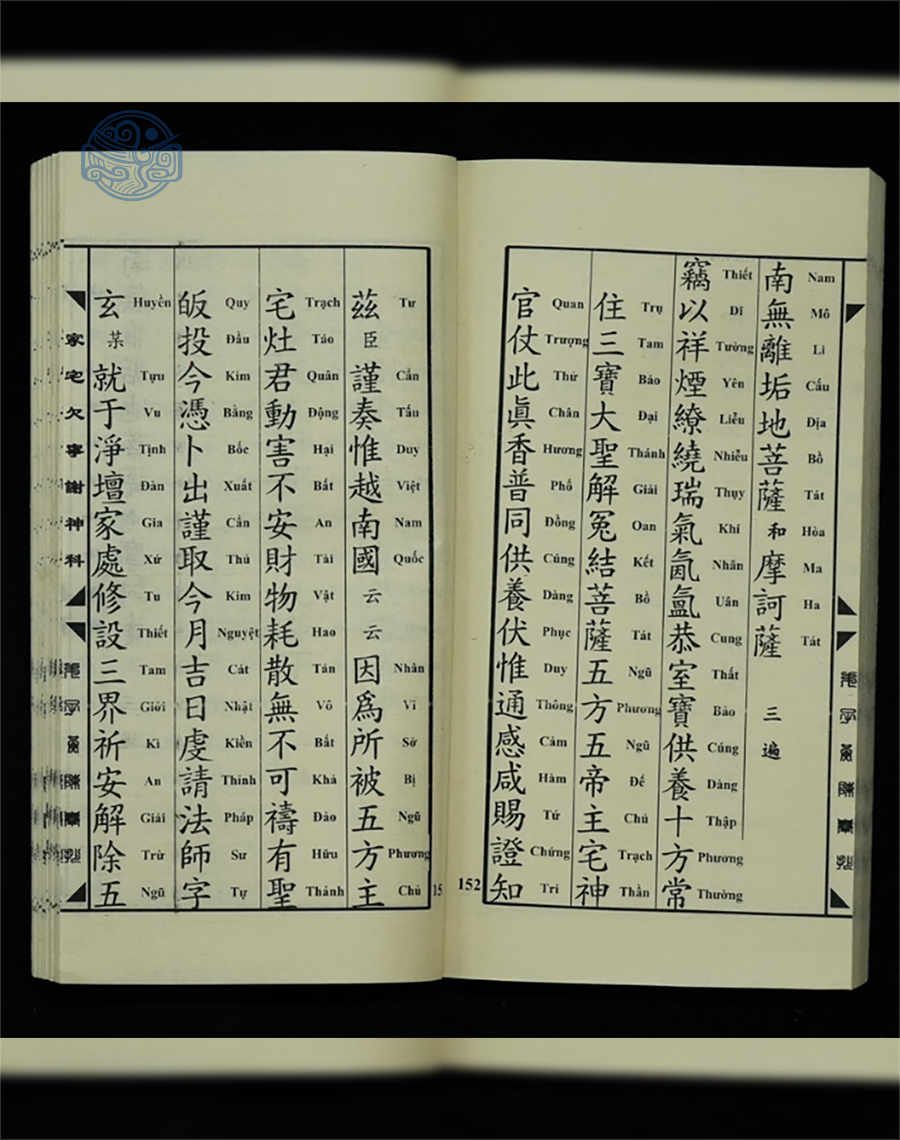 南無離垢地菩薩和摩訶薩 三遍
Nam Mô Li Cấu Địa Bồ Tát Hòa Ma Ha Tát
竊以祥煙繚繞瑞氣氤氳恭室寶供養十方常
Thiết Dĩ Tường Yên Liễu Nhiễu Thụy Khí Nhân Uân Cung Thất Bảo Cúng Dàng Thập Phương Thường
住三寶大聖解冤結菩薩五方五帝主宅神
Trụ Tam Bảo Đại Thánh Giải Oan Kết Bồ Tát Ngũ Phương Ngũ Đế Chủ Trạch Thần
官仗此眞香普同供養伏惟通感咸賜證知
Quan Trượng Thử Chân Hương Phổ Đồng Cúng Dàng Phục Duy Thông Cảm Hàm Tứ Chứng Tri
152
茲臣謹奏惟越南國云云因爲所被五方主
Tư Cẩn Tấu Duy Việt Nam Quốc Nhân Vi Sở Bị Ngũ Phương Chủ
宅灶君動害不安財物耗散無不可禱有聖
Trạch Táo Quân Động Hại Bất An Tài Vật Hao Tán Vô Bất Khả Đảo Hữu Thánh
皈投今憑卜出謹取今月吉日虔請法師字
Quy Đầu Kim Bằng Bốc Xuất Cẩn Thủ Kim Nguyệt Cát Nhật Kiền Thỉnh Pháp Sư Tự
玄某就于淨壇家處修設三界祈安解除五
Huyền Tựu Vu Tịnh Đàn Gia Xứ Tu Thiết Tam Giới Kì An Giải Trừ Ngũ
家宅欠寧謝神科
15